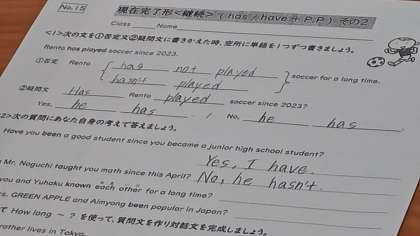 No.15 現在完了形<継続> ( has / have + P.P ) その2
Class Name
<1>次の文を①否定文②疑問文に書きかえた時、空所に単語を1つずつ書きましょう。
Rento has played soccer since 2023.
①否定 Rento has not played
hasn't played soccer for a long time.
②疑問文 Has Rento played soccer since 2023?
Yes, he has. / No, he has
2>次の質問にあなた自身の考えで答えましょう。
Have you been a good student since you became a junior high school student?
Yes, I have.
Mr. Noguchi taught you math since this April? No, he hasn't.
you and Yuhaku known each other for a long time?
GREEN APPLE and Aimyong been popular in Japan?
て How long ~ ? を使って、質問文を作り対話文を完成しましょう。
brother lives in Tokyo.